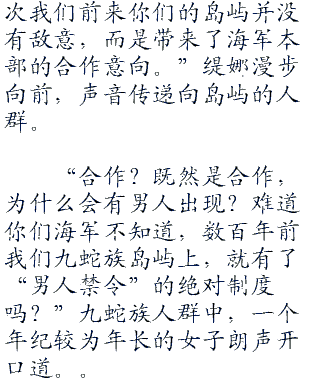 次我们前来你们的岛屿并没
有敌意，而是带来了海军本
部的合作意向。”缇娜漫步
向前，声音传递向岛屿的人
群。
“合作？既然是合作，
为什么会有男人出现？难道
你们海军不知道，数百年前
我们九蛇族岛屿上，就有了
“男人禁令”的绝对制度
吗？”九蛇族人群中，一个
年纪较为年长的女子朗声开
口道。。